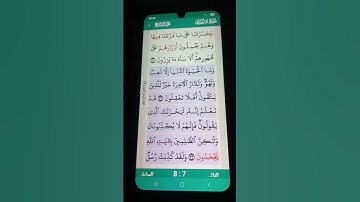 يَٰحَسْرَتَنَا عَلَىٰ مَا فَرَّطْنَا فِيهَا
وَهُمْ يَحْمِلُونَ أَوْزَارَهُمْ عَلَىٰ
ظُهُورِهِمْ أَلَا سَآءَ مَا يَزِرُونَ ٣١
وَمَا ٱلْحَيَوٰةُ ٱلدُّنْيَآ إِلَّا لَعِبٌ
وَلَهْوٌ وَلَلدَّارُ ٱلْءَاخِرَةُ خَيْرٌ لِّلَّذِينَ
يَتَّقُونَ أَفَلَا تَعْقِلُونَ ٣٢ قَدْ
نَعْلَمُ إِنَّهُۥ لَيَحْزُنُكَ ٱلَّذِى
يَقُولُونَ فَإِنَّهُمْ لَا يُكَذِّبُونَكَ
وَلَٰكِنَّ ٱلظَّٰلِمِينَ بِـَٔايَٰتِ ٱللَّهِ
يَجْحَدُونَ ٣٣ وَلَقَدْ كُذِّبَتْ رُسُلٌ
8:7